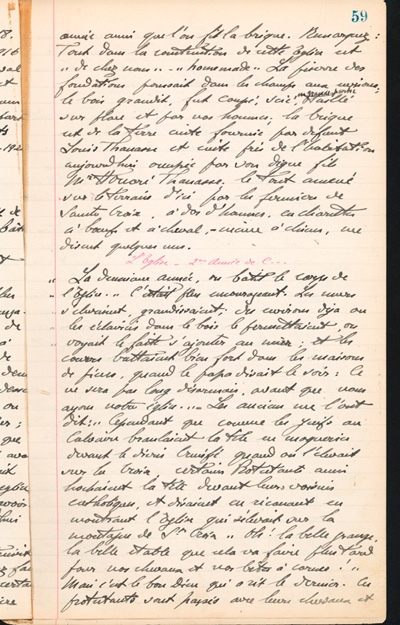 59
année ainsi que l'on fit la brique. Remarquez:
Tout dans la construction de cette Église est
"de chez nous" - "homemade". La pierre des
fondations poussait dans les champs aux environs;
le bois grandit, fut coupé, scié, en grande partie taillé
sur place et par nos hommes; la brique
est de la terre cuite fournie par défunt
Louis Thanasse et cuite près de l'habitation
aujourd'hui occupée par son digne fils
Mr Honoré Thanasse. Le tout amené
sur le terrain d'ici par les fermiers de
Sainte Croix, à dos d'hommes, en charrettes
à boeufs et à cheval, - même à chiens, me
disent quelques uns.
L'Église - 2me Année de C...
"La deuxième année, on bâtit le corps de
l'Église." C'était plus encourageant. Les murs
s'élevaient, grandissaient; des environs déjà où
les éclaircis dans le bois le permettaient, on
voyait le faîte s'ajouter au mur; et les
coeurs battaient bien fort dans les maisons
de pièces, quand le papa disait le soir: Ce
ne sera pas long désormais, avant que nous
ayons notre église... Les anciens me l'ont
dit:.. Cependant que comme les Juifs au
Calvaire branlaient la tête en moqueries
devant le divin Crucifié quand on l'élevait
sur la Croix, certains Protestants aussi
hochaient la tête devant leurs voisins
catholiques, et disaient en ricanant en
montrant l'Église qui s'élevait sur la
montagne de Ste Croix "Oh! la belle grange,
la belle étable que cela va faire plus tard
pour nos chevaux et nos bêtes à cornes!"
Mais c'est le bon Dieu qui a rit le dernier. Ces
protestants sont passés avec leurs chevaux et